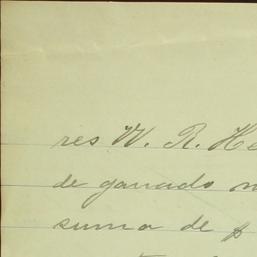 res W. R. He
de ganado
suma de $